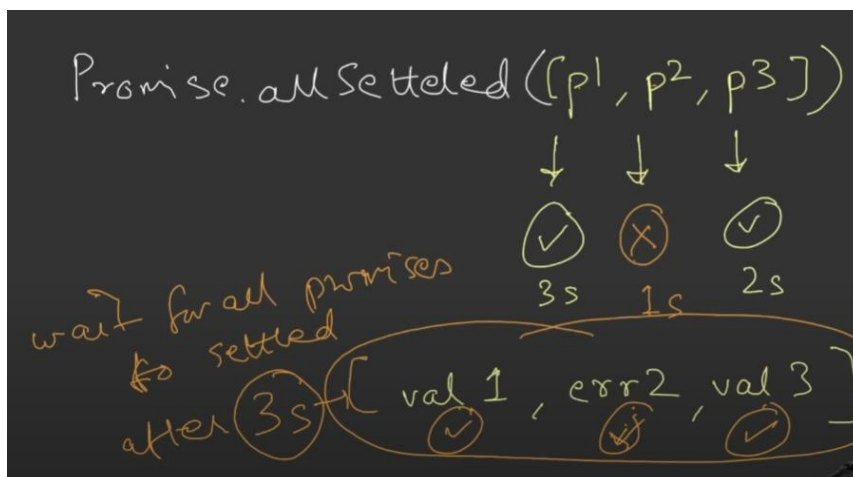 Promise.allSettled([p1, p2, p3])
3s 1s 2s
wait for all promises
to settled
after 3s → [val 1, err2, val 3]